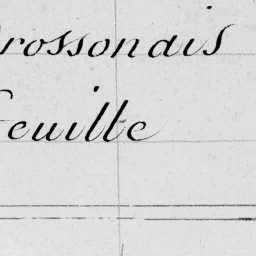 rossondis
euille